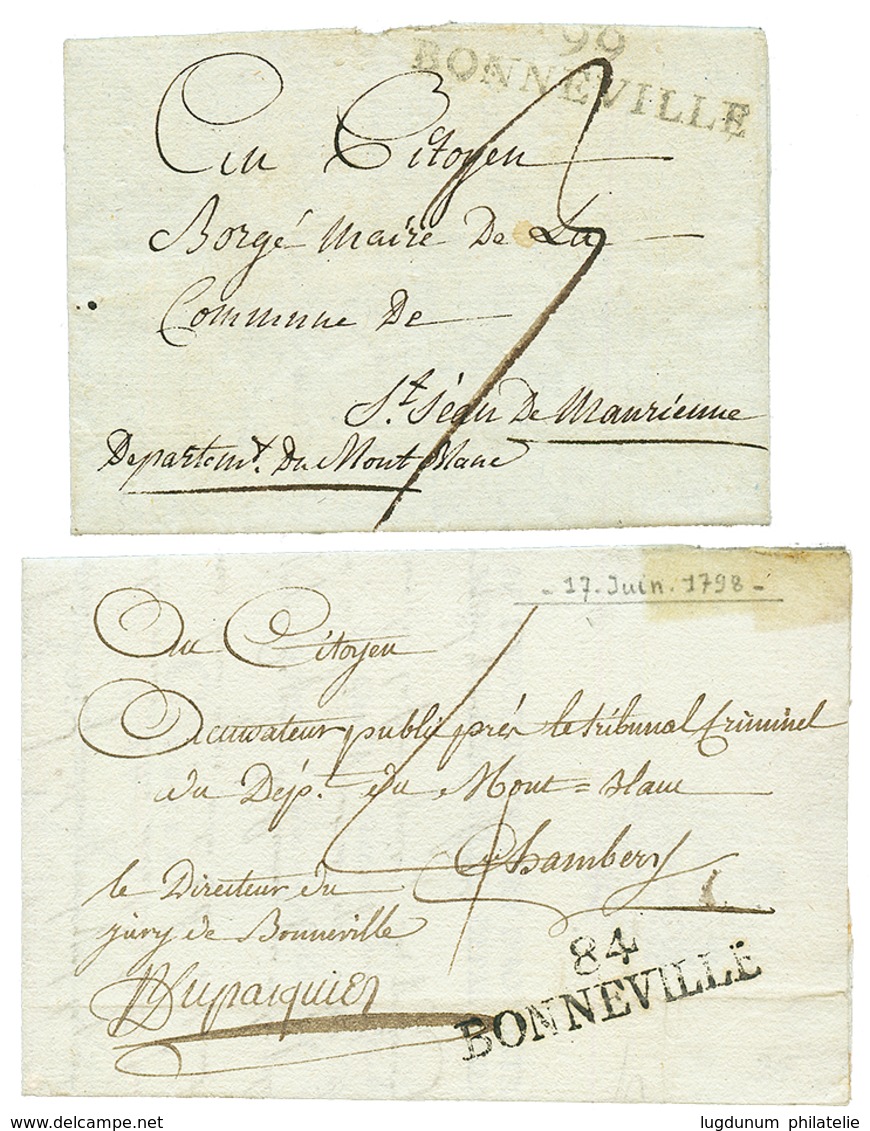 99
BONNEVILLE
Au Citoyen
Borgé Maire De La
Commune De
St. Jéan De Maurienne
Departemt. Du Mont Blanc
- 17. Juin. 1798 -
Au Citoyen
Accusateur public près le tribunal Criminel
du Dép.t du Mont = blanc
Chambery
le Directeur du
jury de Bonneville
Dupasquier
84
BONNEVILLE
lugdunum philatelie